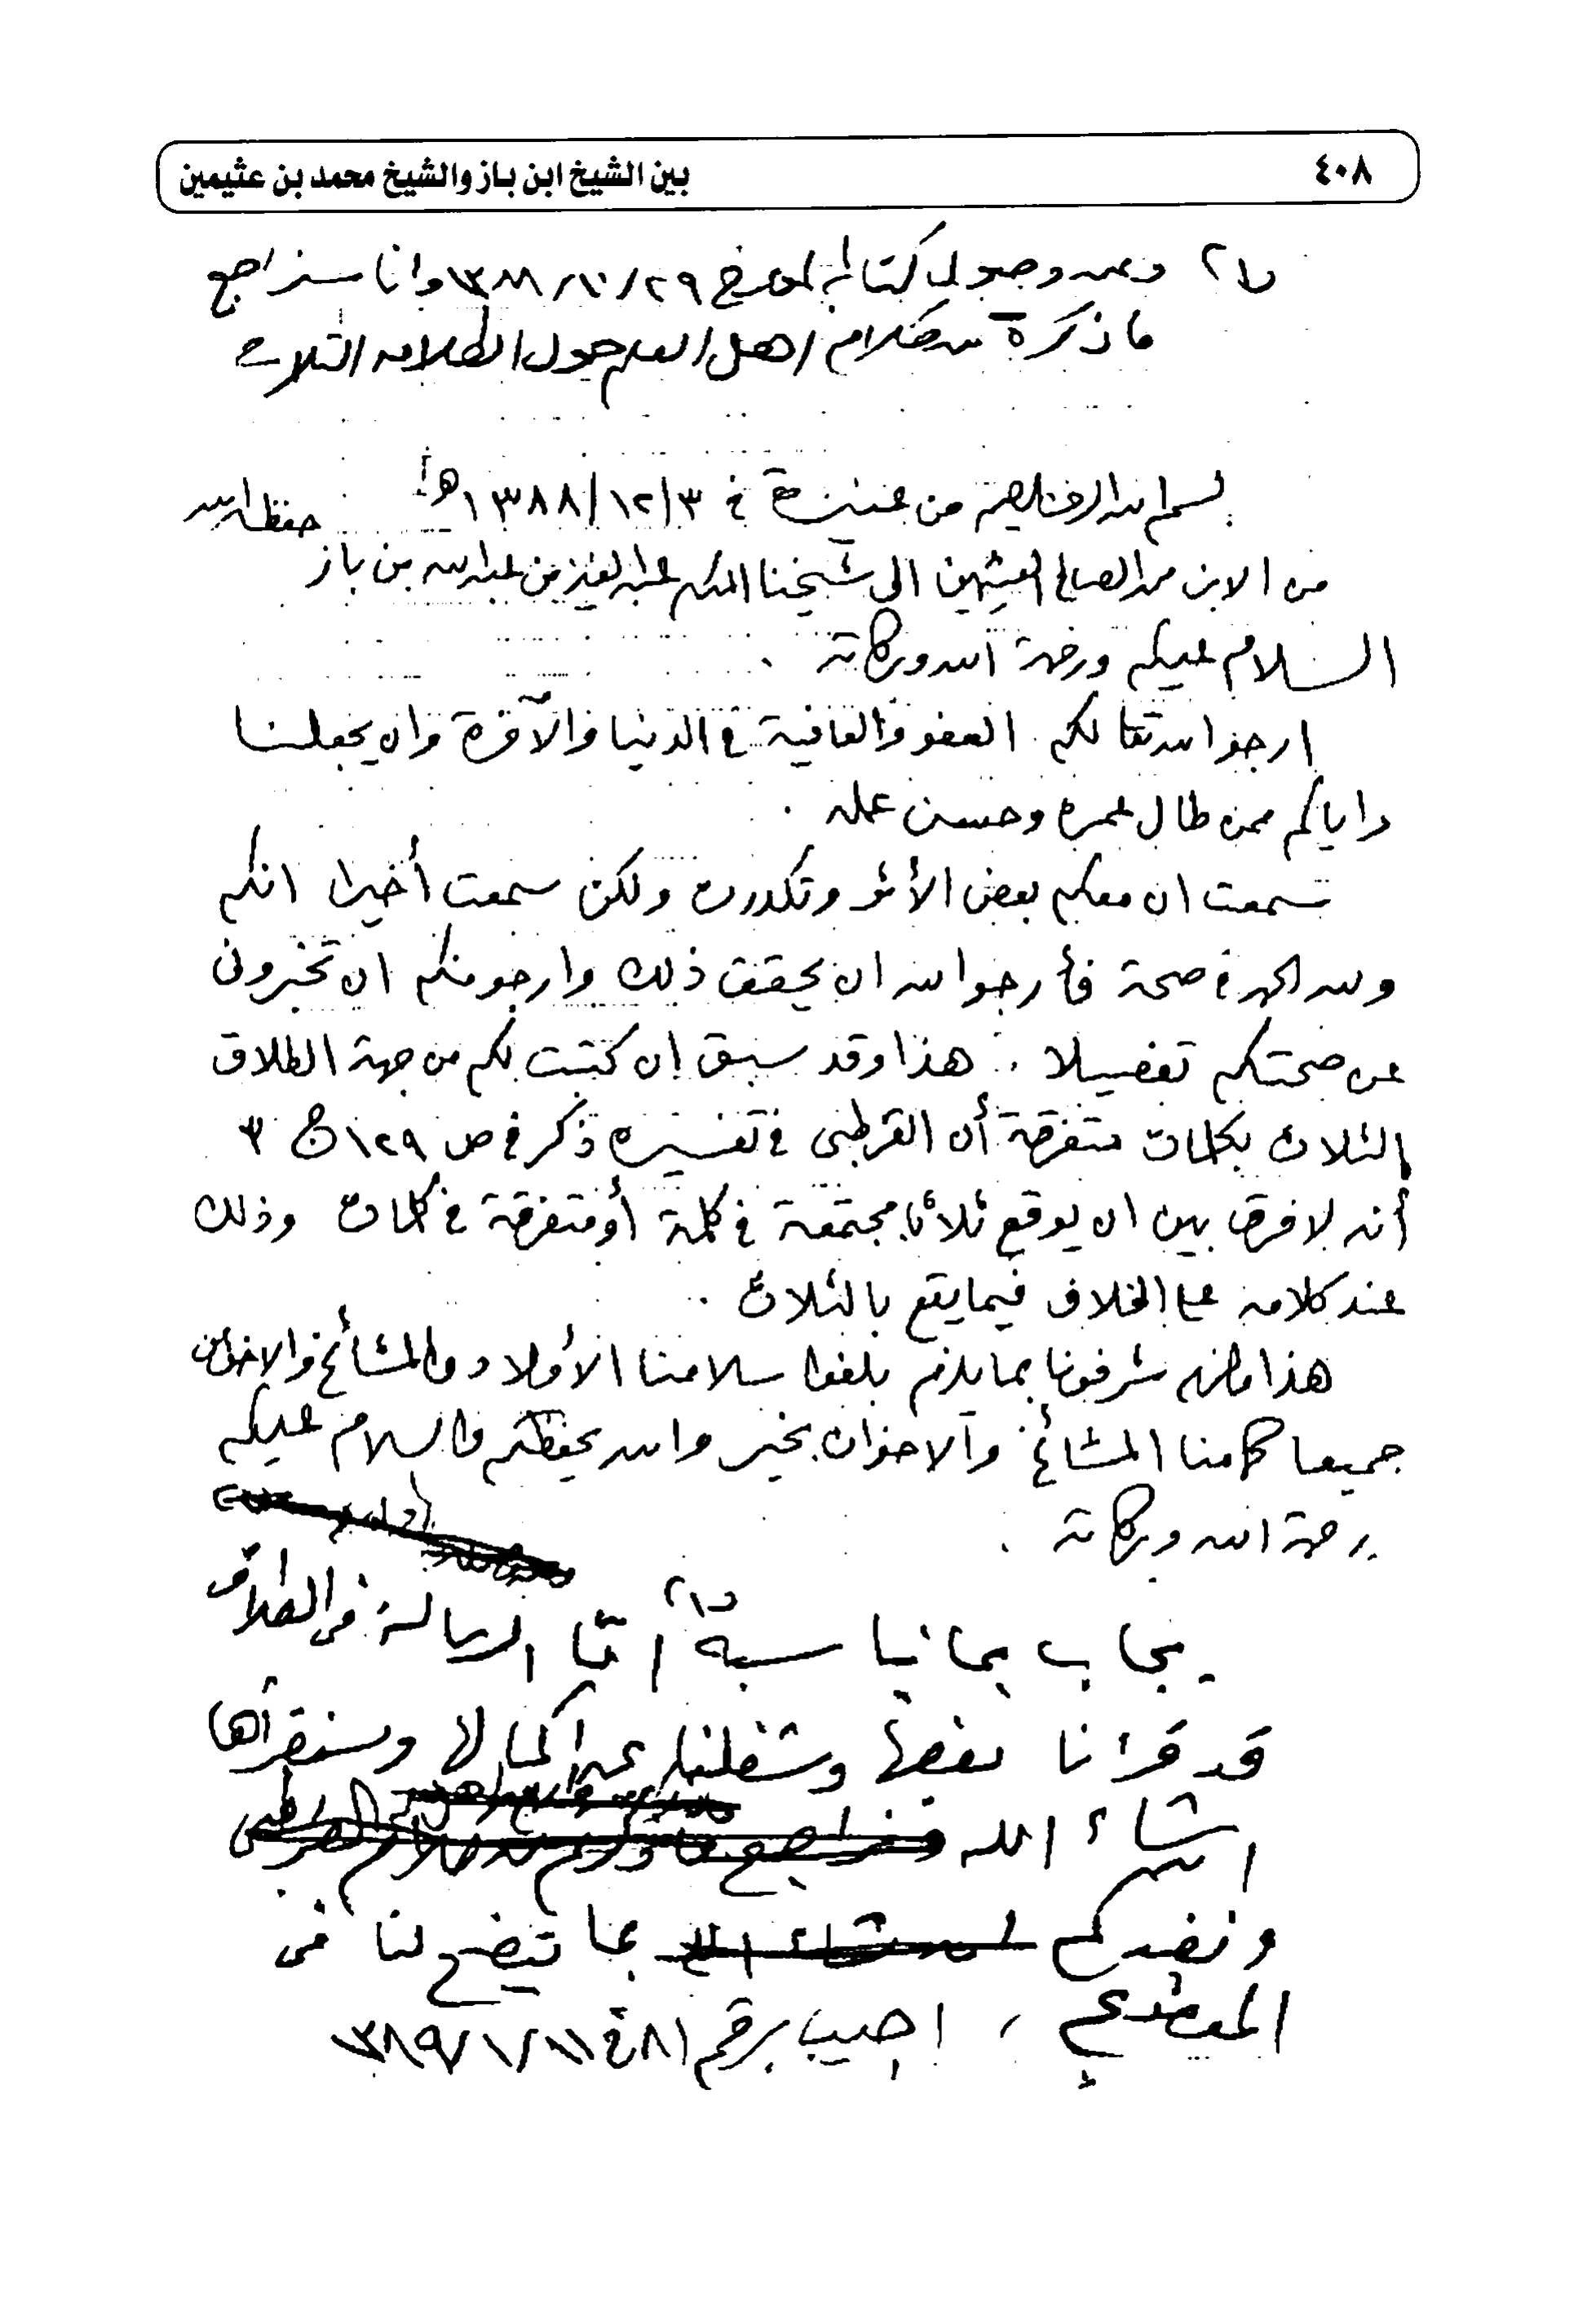 ٤٠٨
بين الشيخ ابن باز والشيخ محمد بن عثيمين
وصولي كتابه المؤرخ ٢٩/١٠/١٣٨٨ وانا سنراجع
ما ذكره من كلام اهل العلم حول الطلاق الثلاث
بسم الله الرحمن الرحيم من عنيزة في ٣/١٢/١٣٨٨هـ
من الابن محمد الصالح العثيمين الى شيخنا المكرم عبد العزيز بن عبد الله بن باز حفظه الله
السلام عليكم ورحمة الله وبركاته .
ارجو الله تعالى لكم العفو والعافية في الدنيا والآخرة وان يجعلنا
واياكم ممن طال عمره وحسن عمله .
سمعت ان معكم بعض الأثر وتكدرت ولكن سمعت أخيرا انكم
ولله الحمد في صحة فأرجو الله ان يحقق ذلك وارجو منكم ان تخبروني
عن صحتكم تفصيلا . هذا وقد سبق ان كتبت لكم من جهة الطلاق
الثلاث بكلمات متفرقة أن القرطبي في تفسيره ذكر في ص ١٢٩ ج ٣
أنه لا فرق بين ان يوقع ثلاثا مجتمعة في كلمة أو متفرقة في كلمات وذلك
عند كلامه على الخلاف فيما يقع بالثلاث .
هذا ما لزم شرفونا بما يلزم بلغوا سلامنا الأولاد والمشائخ والاخوان
جميعا كما منا المشائخ والاخوان بخير والله يحفظكم والسلام عليكم
ورحمة الله وبركاته .
يجاب بما يناسبه اما الرسالة في الطلاق
قد قرأنا بعضها وشغلنا عن اكمالها وسنقرأها
ان شاء الله
ونفيدكم بما يتضح لنا في
الموضوع ، اجيب برقم